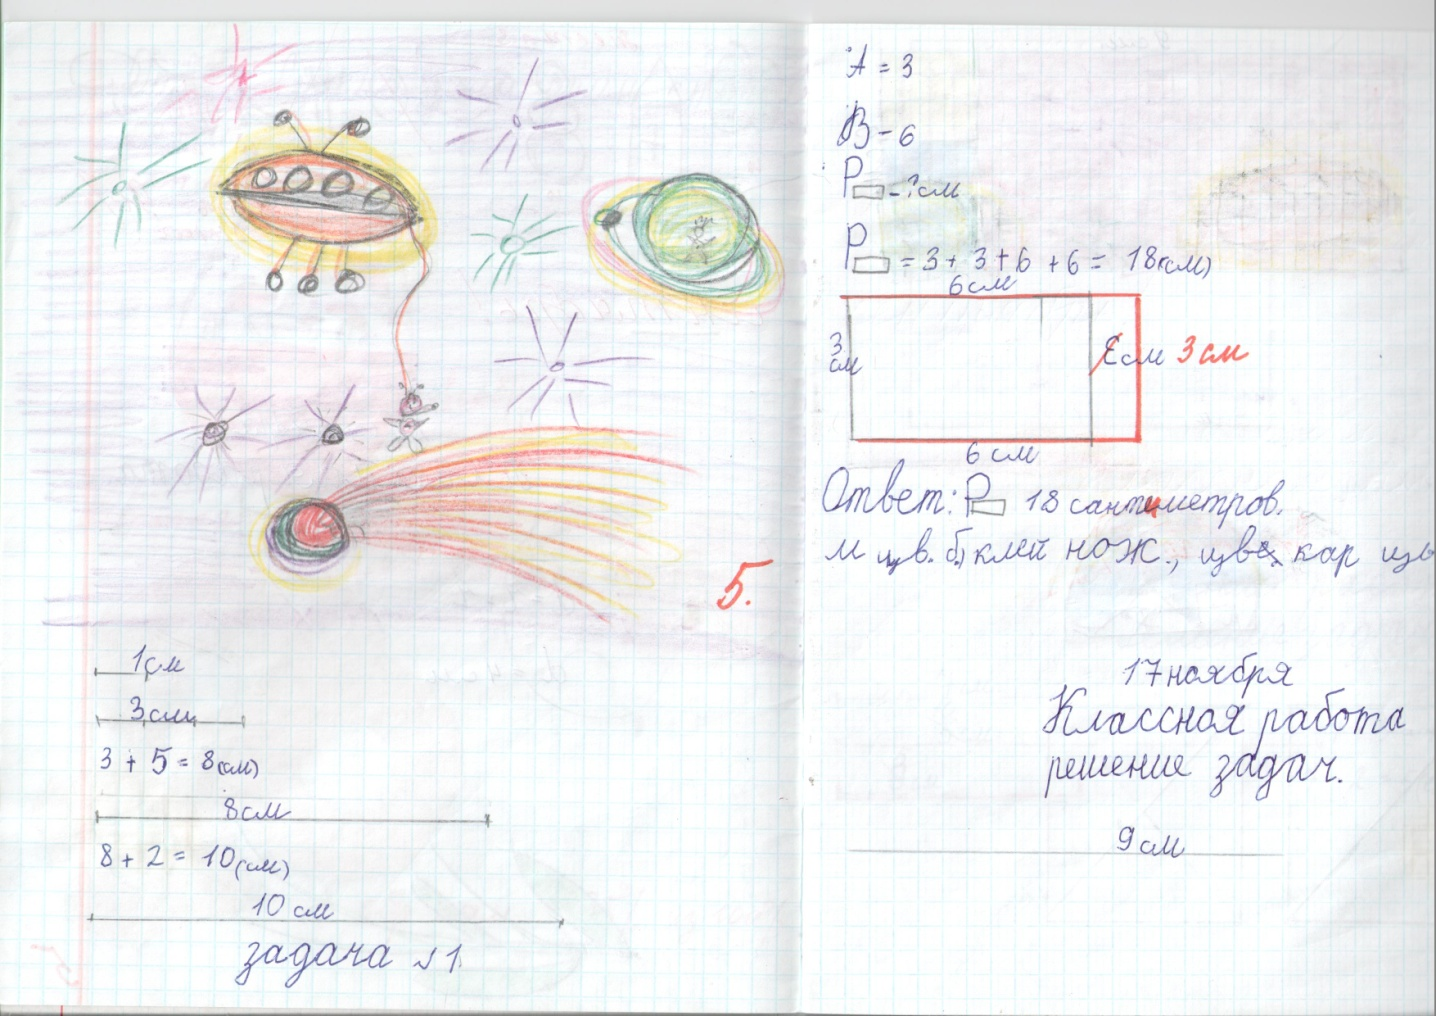 5.
1см
3см
3 + 5 = 8(см)
8см
8 + 2 = 10(см)
10 см
задача №1
А = 3
В - 6
Р▭ - ? см
Р▭ = 3 + 3 + 6 + 6 = 18(см)
6см
3 см
см 3 см
6 см
Ответ: Р▭ 18 сантиметров.
цв. б, клей нож., цв. кар цв
17 ноября
Классная работа
решение задач.
9 см